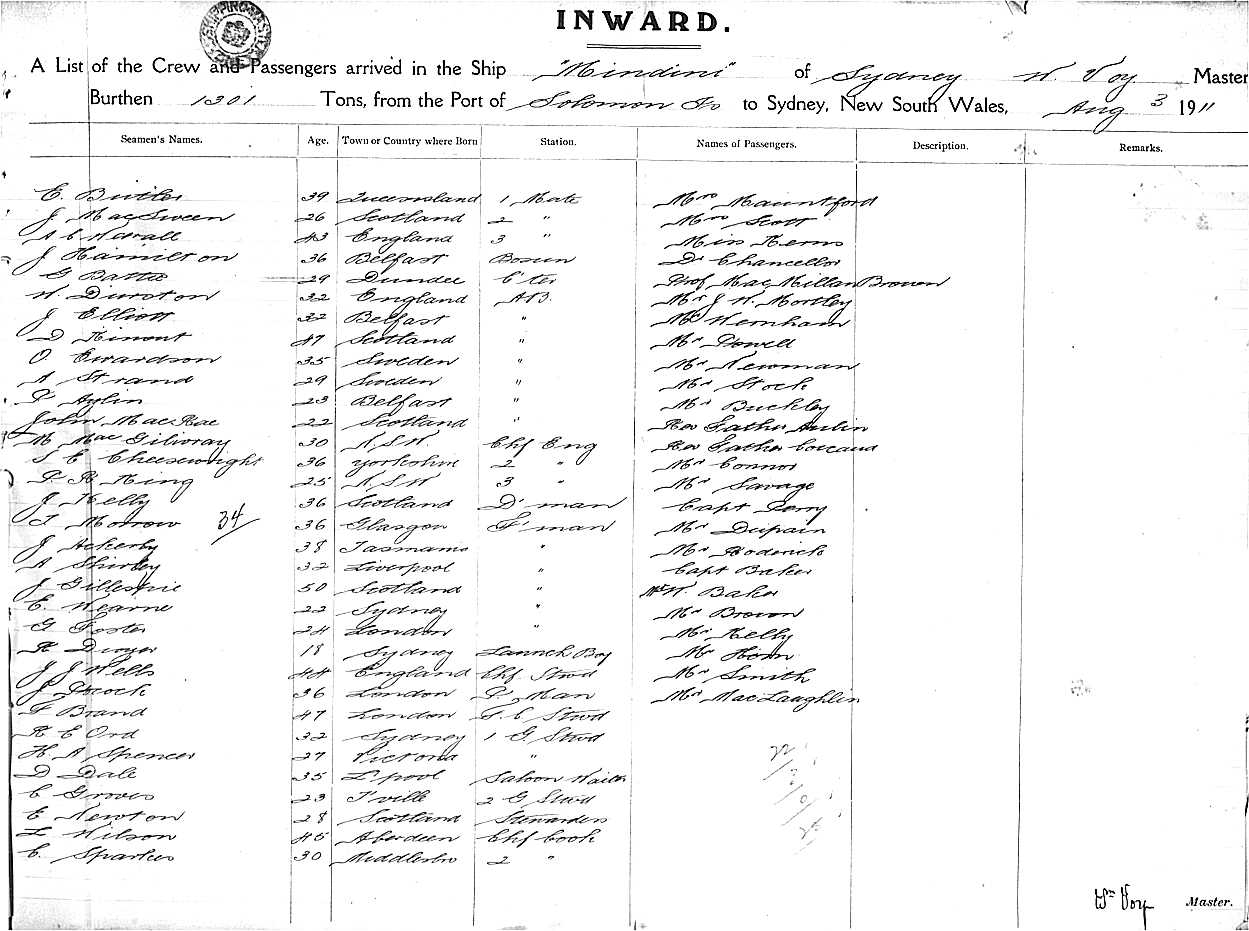 INWARD.
A List of the Crew and Passengers arrived in the Ship "Mindini" of Sydney W. Voy Master
Burthen 1301 Tons, from the Port of Solomon Is to Sydney, New South Wales, Aug 3 1911
Seamen's Names. Age. Town or Country where Born Station. Names of Passengers. Description. Remarks.
E. Butler 39 Queensland 1 Mate Mrs Mauntford
J MacSween 26 Scotland 2 " Mrs Scott
A C 43 England 3 " Miss Kerns
J Hamilton 36 Belfast Bosun Dr Chancellor
G 29 Dundee C'ter Prof MacMillan Brown
W. Durston 32 England AB. Mr J W. Mortley
J Elliott 32 Belfast " Mr Wernham
D Kinont 47 Scotland " Mr Powell
O. Ewardson 35 Sweden " Mr Newman
A Strand 29 Sweden " Mr Stock
P Aylin 23 Belfast " Mr Buckley
John MacRae 22 Scotland " Rev Father
M MacGilivray 30 N.S.W. Chf Eng Rev Father
S C Cheesewright 36 Yorkshire 2 " Mr Connor
P R King 25 N S W 3 " Mr Savage
J Kelly 36 Scotland D'man Capt
T Morrow 34 36 Glasgow F'man Mr Dupain
J Ackerby 38 Tasmania " Mr Roderick
A Shirley 32 Liverpool " Capt Baker
J Gillespie 50 Scotland " Mr W. Baker
E. Hearne 22 Sydney " Mr Brown
G Foster 24 London " Mr Kelly
R Dwyer 18 Sydney Lannch Boy Mr Horn
J J Wells 44 England Chf Stwd Mr Smith
J Pocock 36 London P. Man Mrs MacLaughlin
F Brand 47 London F.C Stwd
R C Ord 32 Sydney 1 G Stwd
H. A Spencer 27 Victoria "
D Dale 35 L'pool Saloon Waiter
C Groves 23 T'ville 2 G Stwd
E Newton 28 Scotland Stewardess
L Wilson 45 Aberdeen Chf Cook
C. Sparkes 30 Middlesbro 2 "
Wm Voy Master.